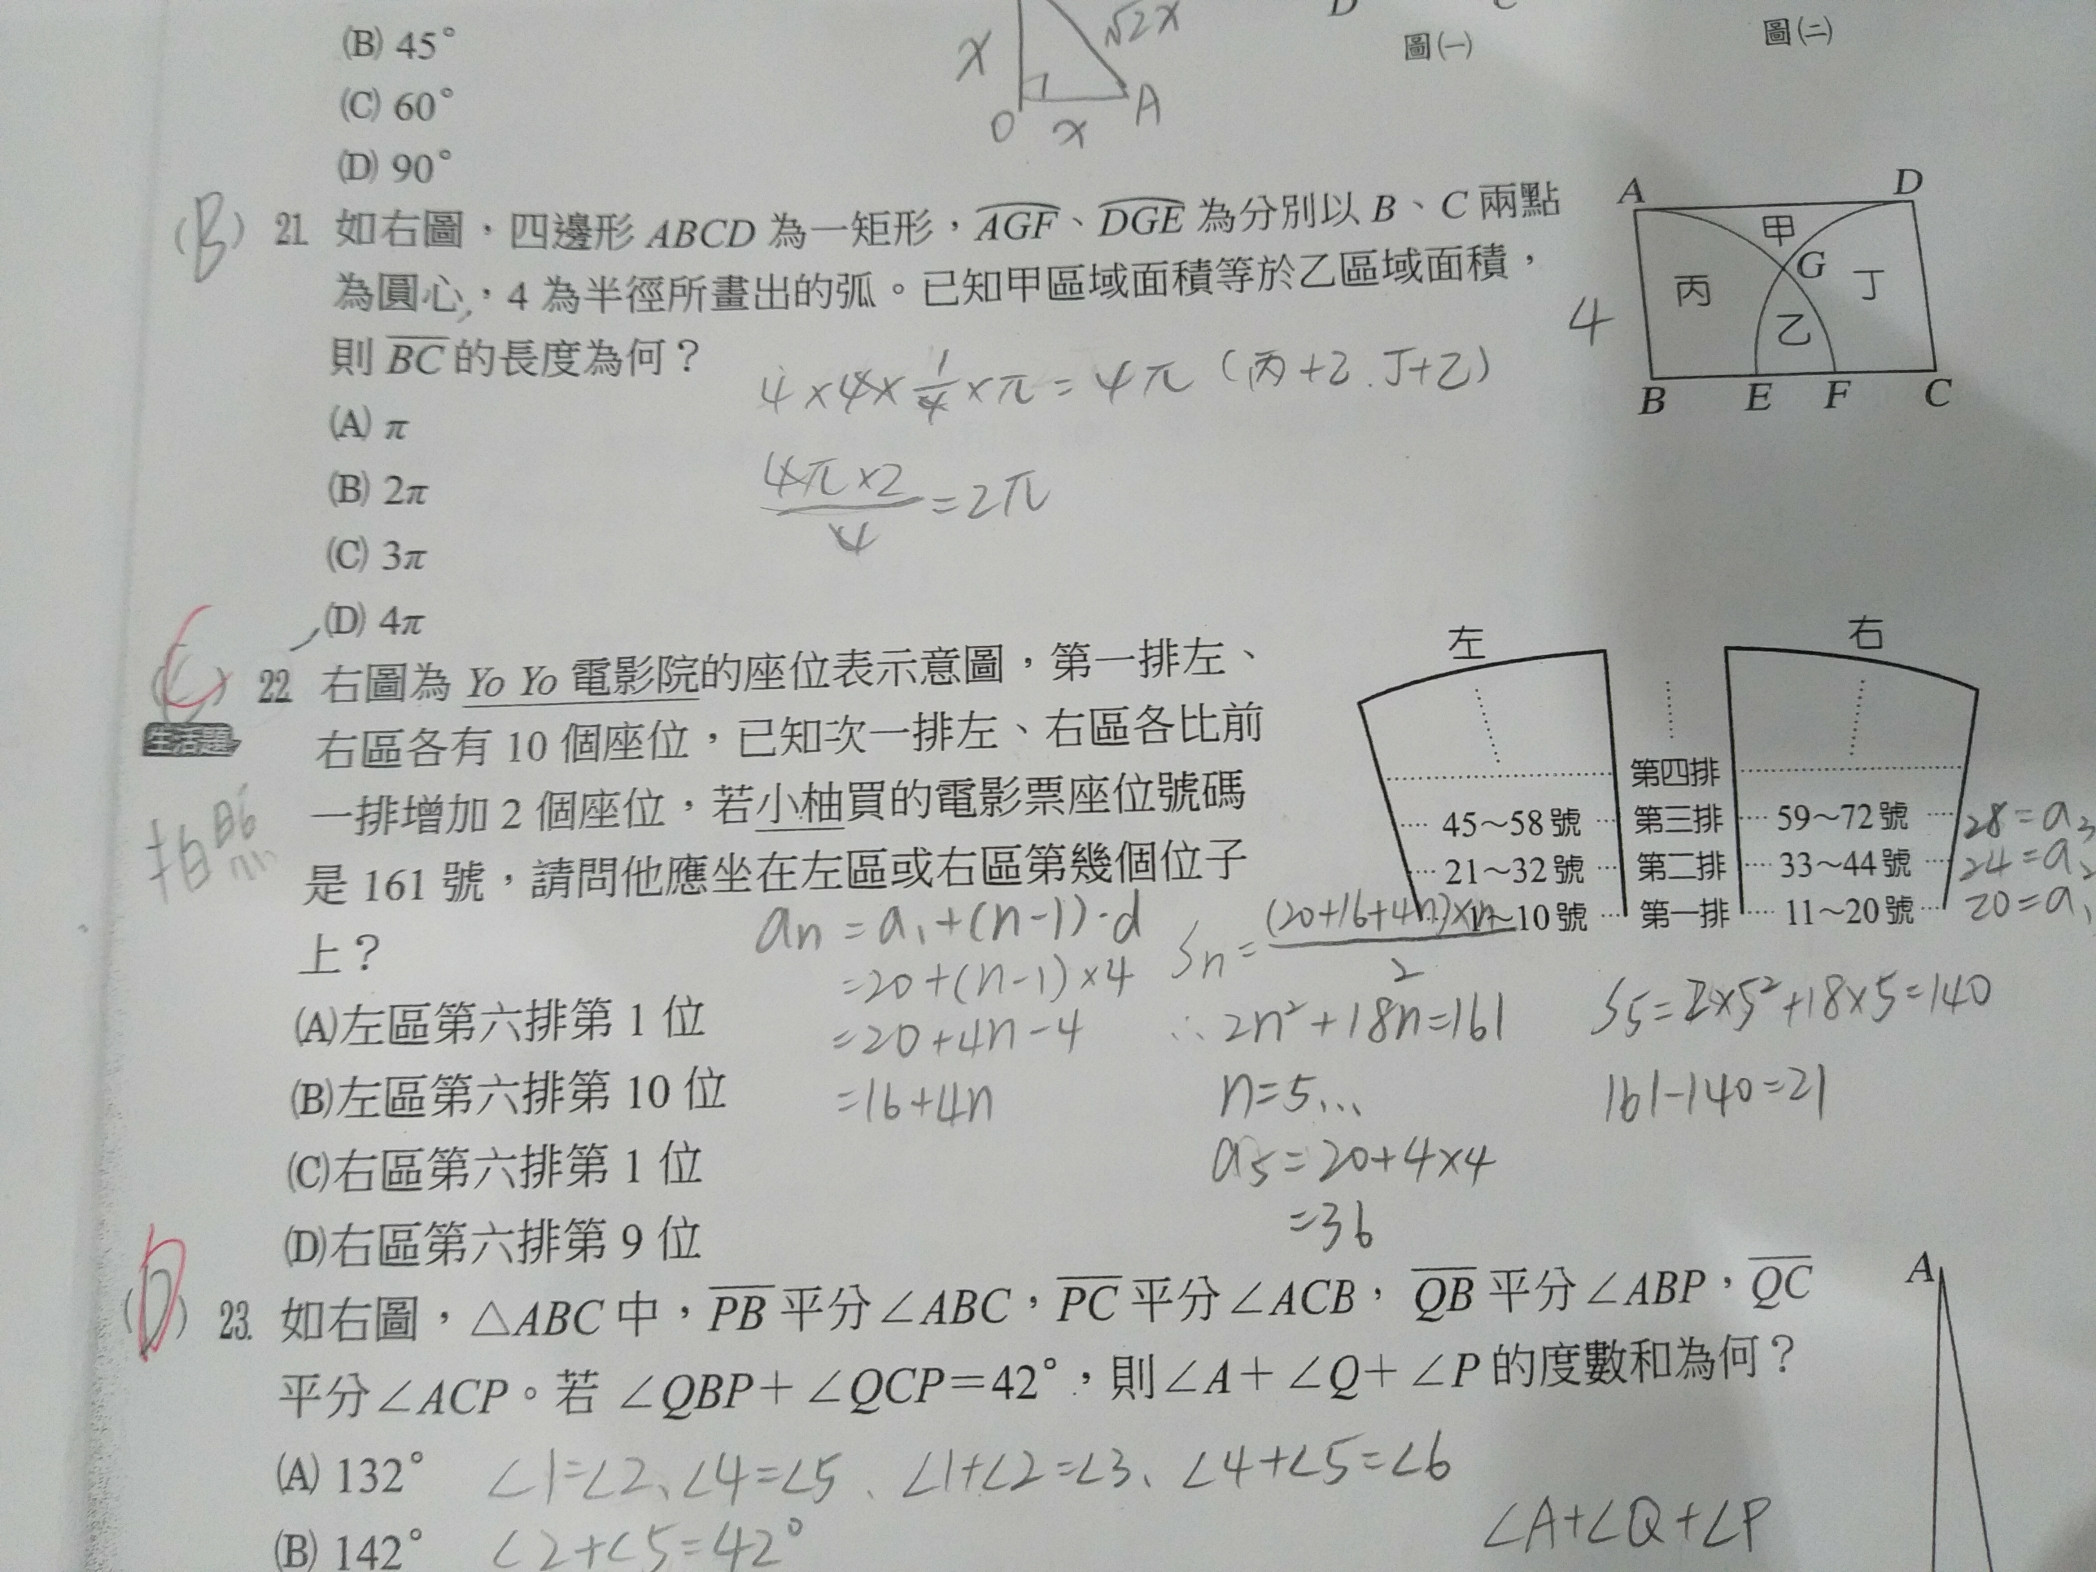 (B) 45°
(C) 60°
(D) 90°
x
√2x
O
x
A
D
C
圖㈠
圖㈡
(B) 21. 如右圖，四邊形 ABCD 為一矩形，AGF、DGE 為分別以 B、C 兩點
為圓心，4 為半徑所畫出的弧。已知甲區域面積等於乙區域面積，
則 BC 的長度為何？
(A) π
(B) 2π
(C) 3π
(D) 4π
4×4×1/4×π=4π (丙+乙.丁+乙)
4π×2/4=2π
A
D
甲
G
丙
丁
乙
4
B
E
F
C
(C) 22. 右圖為 Yo Yo 電影院的座位表示意圖，第一排左、
生活題
右區各有 10 個座位，已知次一排左、右區各比前
一排增加 2 個座位，若小柚買的電影票座位號碼
是 161 號，請問他應坐在左區或右區第幾個位子
上？
拍照
(A)左區第六排第 1 位
(B)左區第六排第 10 位
(C)右區第六排第 1 位
(D)右區第六排第 9 位
左
右
第四排
45～58號 第三排 59～72號 28=a3
21～32號 第二排 33～44號 24=a2
1～10號 第一排 11～20號 20=a1
an=a1+(n-1)·d
=20+(n-1)×4
=20+4n-4
=16+4n
Sn=(20+16+4n)×n/2
∴2n²+18n=161
n=5...
a5=20+4×4
=36
S5=2×5²+18×5=140
161-140=21
(D) 23. 如右圖，△ABC 中，PB 平分∠ABC，PC 平分∠ACB，QB 平分∠ABP，QC
平分∠ACP。若 ∠QBP+∠QCP=42°，則∠A+∠Q+∠P 的度數和為何？
(A) 132°
(B) 142°
∠1=∠2、∠4=∠5、∠1+∠2=∠3、∠4+∠5=∠6
∠2+∠5=42°
∠A+∠Q+∠P
A